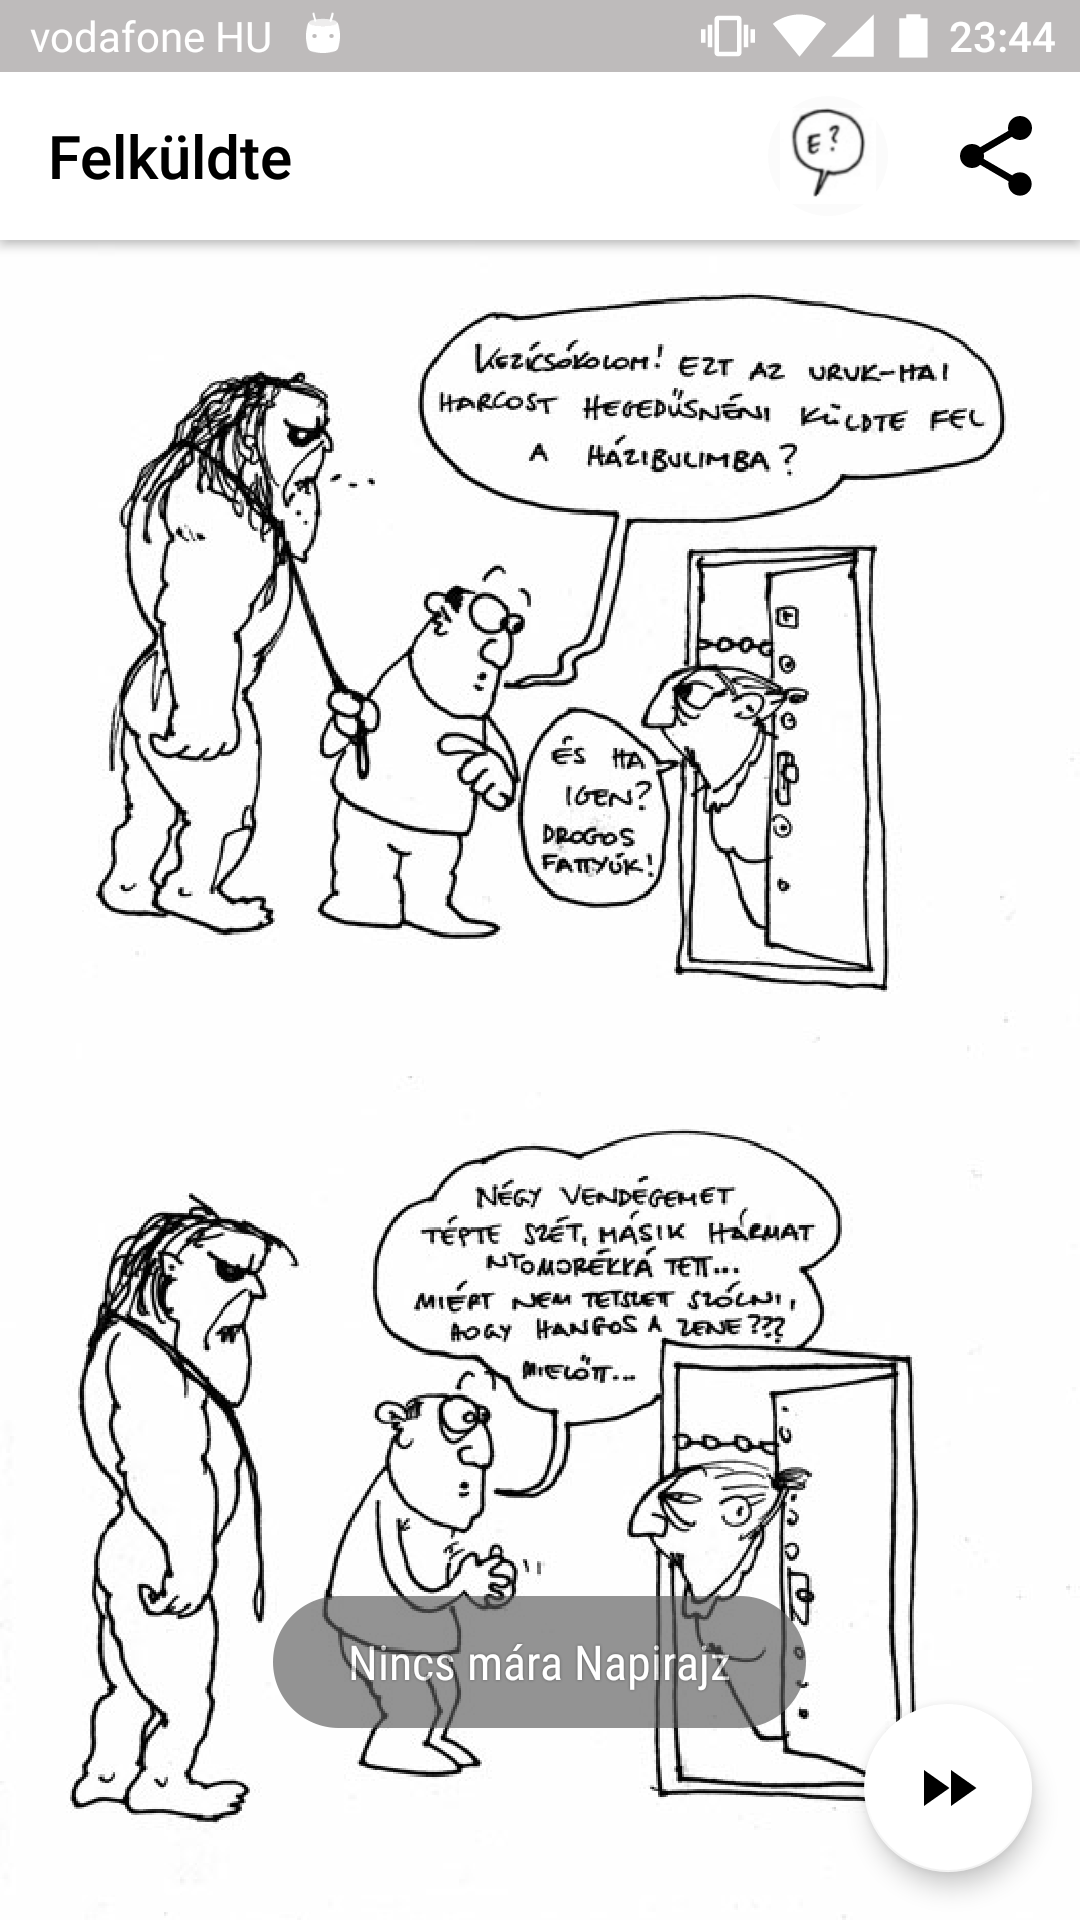 vodafone HU
23:44
Felküldte
E?
KEZICSÓKOLOM! EZT AZ URUK-HAI
HARCOST HEGEDŰSNÉNI KÜLDTE FEL
A HÁZIBULIMBA?
ÉS HA
IGEN?
DROGOS
FATTYÚK!
NÉGY VENDÉGEMET
TÉPTE SZÉT, MÁSIK HÁRMAT
NYOMORÉKKÁ TETT...
MIÉRT NEM TETSZET SZÓLNI,
HOGY HANGOS A ZENE???
MIELŐTT...
Nincs mára Napirajz